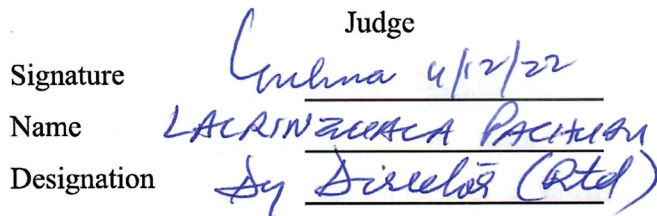 Judge
Signature 4/12/22
Name PACHUAU
Designation Dy Director (Rtd)